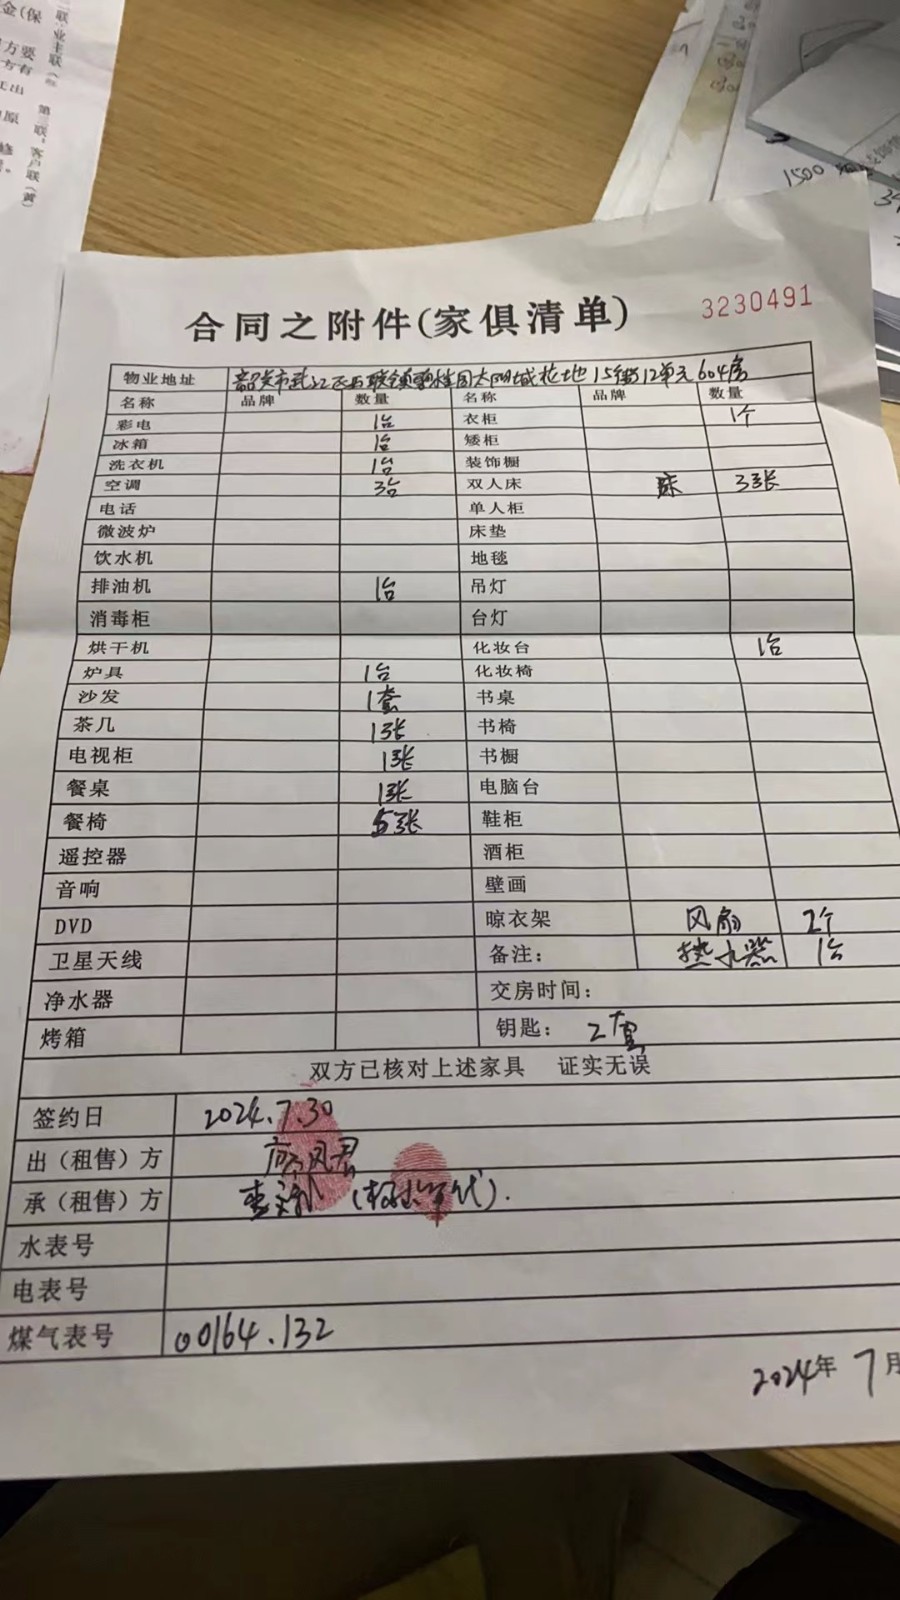 金(保
方要
方有
原
修
二联:业主联(
第三联:客户联(黄)
1500
合同之附件(家俱清单)
3230491
物业地址 韶关市武江区 太阳城 地15 12单元604房
名称 品牌 数量 名称 品牌 数量
彩电 1台 衣柜 1个
冰箱 1台 矮柜
洗衣机 1台 装饰橱
空调 3台 双人床 床 3张
电话 单人柜
微波炉 床垫
饮水机 地毯
排油机 1台 吊灯
消毒柜 台灯
烘干机 化妆台 1台
炉具 1台 化妆椅
沙发 1套 书桌
茶几 1张 书椅
电视柜 1张 书橱
餐桌 1张 电脑台
餐椅 5张 鞋柜
遥控器 酒柜
音响 壁画
DVD 晾衣架 风扇 2个
卫星天线 备注: 热水器 1台
净水器 交房时间:
烤箱 钥匙: 2套
双方已核对上述家具 证实无误
签约日 2024.7.30
出(租售)方
承(租售)方
水表号
电表号
煤气表号 00164.132
2024年 7月